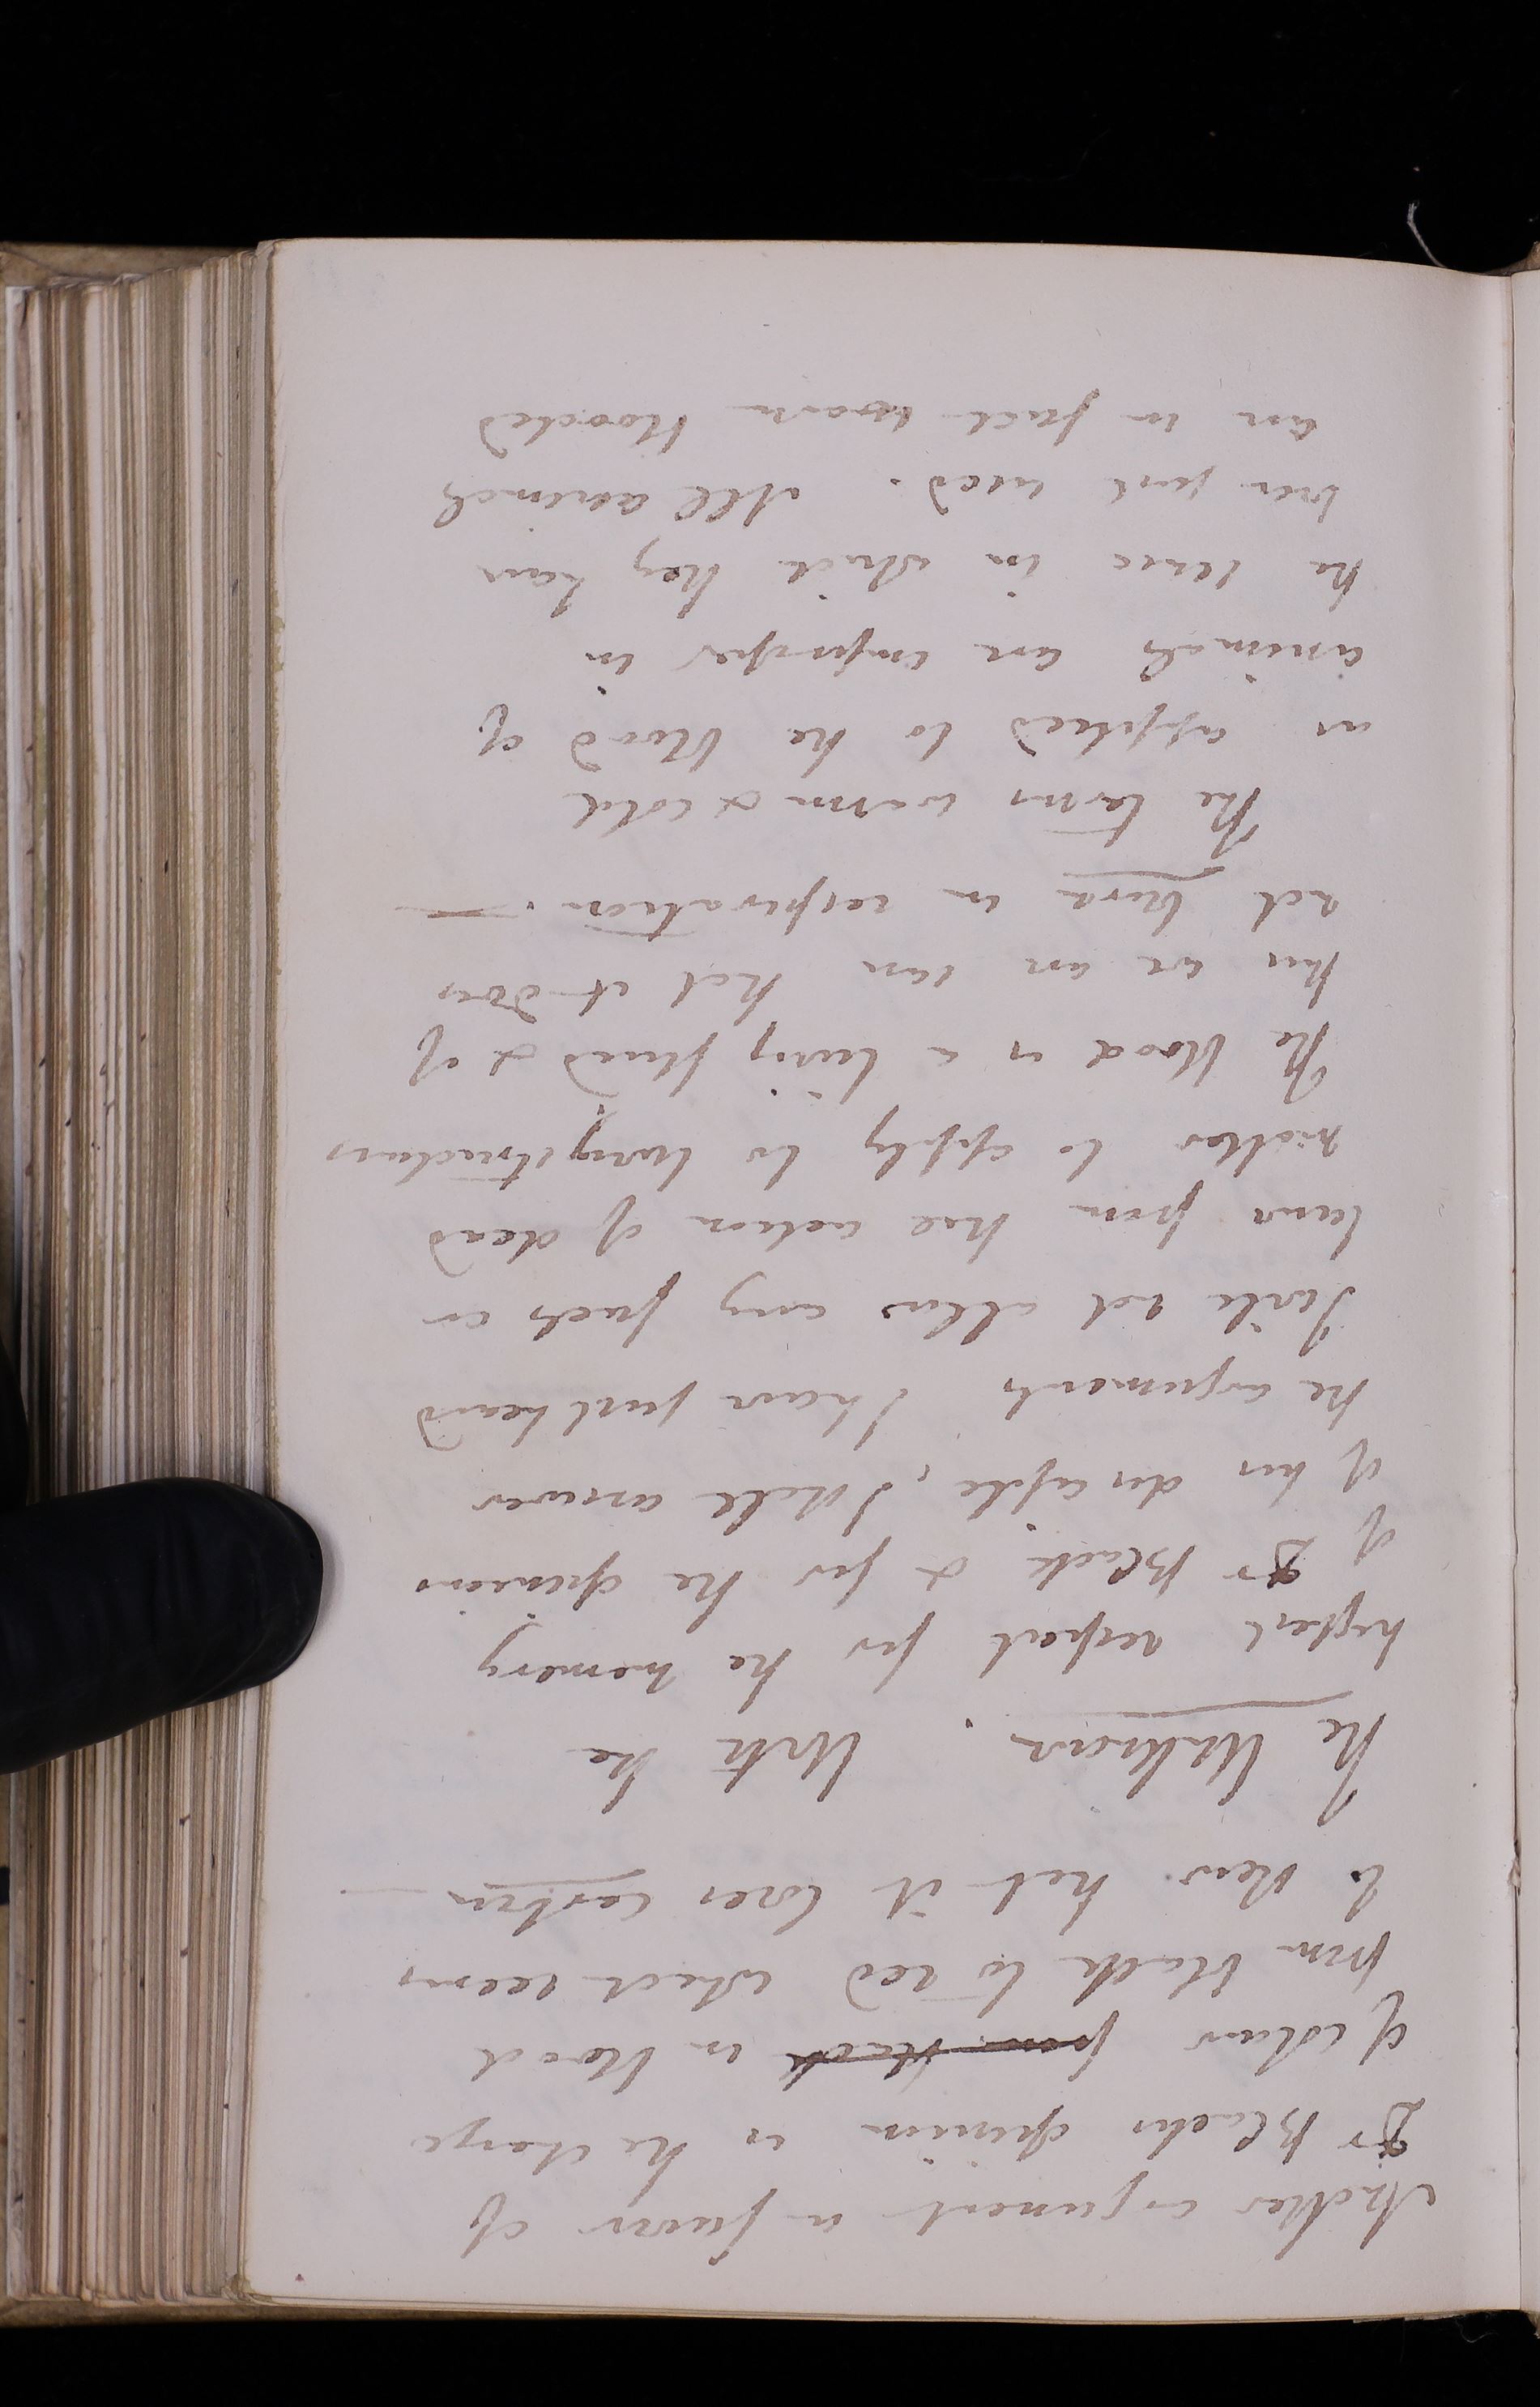 Another argument in favor of
Dr Blacks opinion is the change
of colour from black in blood
from black to red which seems
to shew that it loses carbon
The Unknown. With the
highest respect for the memory
of Dr Black & for the opinions
of his disciple, I shall answer
the arguments I have just heard
I will not allow any facts or
laws from the action of dead
matter to apply to living structures
The blood is a living fluid & of
this we are sure that it does
not burn in respiration. —
The terms warm & cold
as applied to the blood of
animals are improper in
the sense in which they have
been just used. All animals
are in fact warm blooded